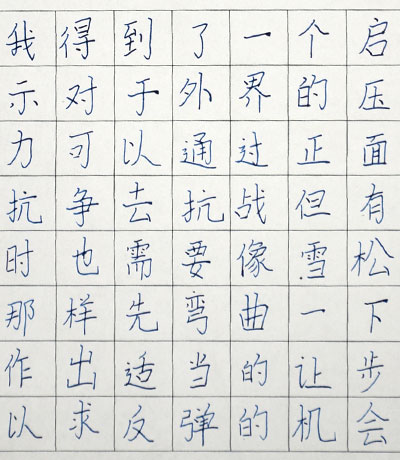 我得到了一个启
示对于外界的压
力可以通过正面
抗争去抗战但有
时也需要像雪松
那样先弯曲一下
作出适当的让步
以求反弹的机会